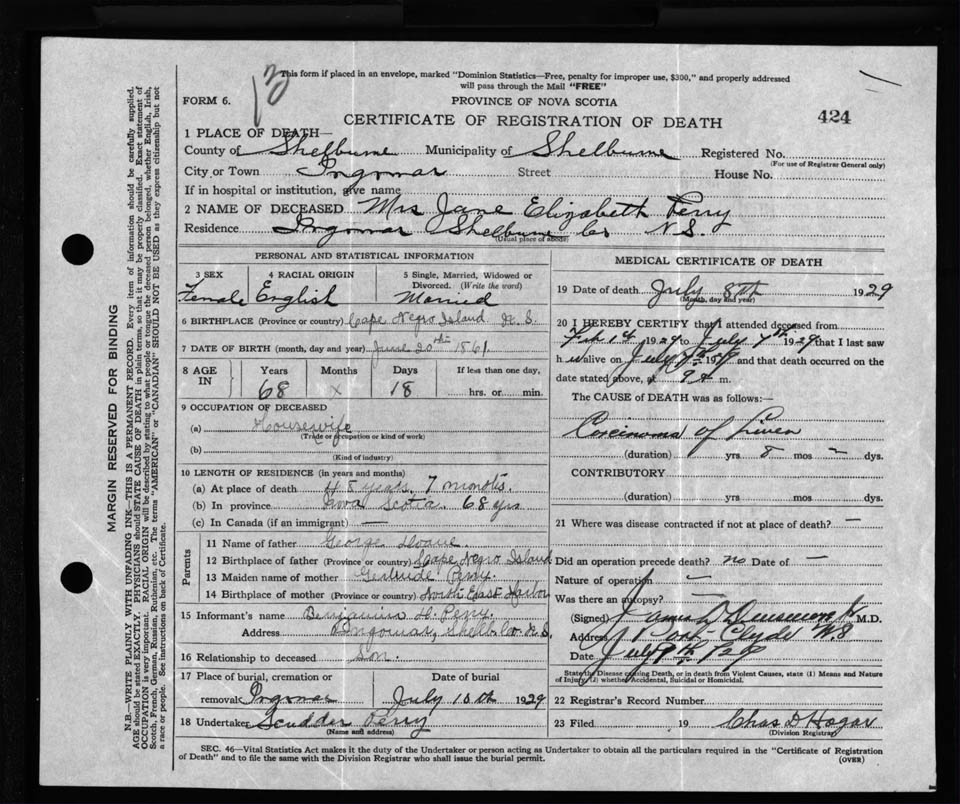 13
This form if placed in an envelope, marked "Dominion Statistics—Free, penalty for improper use, $300," and properly addressed
will pass through the Mail "FREE"
FORM 6.
PROVINCE OF NOVA SCOTIA
424
CERTIFICATE OF REGISTRATION OF DEATH
1 PLACE OF DEATH—
County of Shelburne Municipality of Shelburne Registered No.
(For use of Registrar General only)
City or Town Ingomar Street House No.
If in hospital or institution, give name
2 NAME OF DECEASED Mrs Jane Elizabeth Perry
Residence Ingomar Shelburne Co N.S.
(Usual place of abode)
PERSONAL AND STATISTICAL INFORMATION
3 SEX 4 RACIAL ORIGIN 5 Single, Married, Widowed or
Divorced. (Write the word)
Female English Married
6 BIRTHPLACE (Province or country) Cape Negro Island N.S.
7 DATE OF BIRTH (month, day and year) June 20th 1861
8 AGE IN Years Months Days If less than one day,
68 x 18 hrs. or min.
9 OCCUPATION OF DECEASED
(a) Housewife
(Trade or occupation or kind of work)
(b)
(Kind of industry)
10 LENGTH OF RESIDENCE (in years and months)
(a) At place of death 48 years 7 months.
(b) In province Nova Scotia 68 yrs
(c) In Canada (if an immigrant) —
Parents
11 Name of father George
12 Birthplace of father (Province or country) Cape Negro Island
13 Maiden name of mother Gertrude Perry
14 Birthplace of mother (Province or country) North East Harbor
15 Informant's name Benjamin H. Perry
Address Ingomar, Shelb. Co. N.S.
16 Relationship to deceased Son.
17 Place of burial, cremation or Date of burial
removal Ingomar July 10th 1929
18 Undertaker Scudder Perry
(Name and address)
MEDICAL CERTIFICATE OF DEATH
19 Date of death July 8th 1929
(Month, day and year)
20 I HEREBY CERTIFY that I attended deceased from
Feb 1st 1929 to July 7th 1929 that I last saw
h alive on July 1929 and that death occurred on
date stated above, at 9 m.
The CAUSE of DEATH was as follows:—
Carcinoma of Liver
(duration) yrs 8 mos — dys.
CONTRIBUTORY
(duration) yrs. mos. dys.
21 Where was disease contracted if not at place of death? —
Did an operation precede death? no Date of —
Nature of operation —
Was there an autopsy? —
(Signed) M.D.
Address Port Clyde N.S
Date July 9th 1929
State the Disease causing Death, or in death from Violent Causes, state (1) Means and Nature
of Injury; (2) whether Accidental, Suicidal or Homicidal.
22 Registrar's Record Number
23 Filed 19 Chas D Hogar
(Division Registrar)
SEC. 46—Vital Statistics Act makes it the duty of the Undertaker or person acting as Undertaker to obtain all the particulars required in the "Certificate of Registration
of Death" and to file the same with the Division Registrar who shall issue the burial permit. (OVER)
MARGIN RESERVED FOR BINDING
N.B.—WRITE PLAINLY WITH UNFADING INK—THIS IS A PERMANENT RECORD. Every item of information should be carefully supplied.
AGE should be stated EXACTLY. PHYSICIANS should STATE CAUSE OF DEATH in plain terms, so that it may be properly classified. Exact statement of
OCCUPATION is very important. RACIAL ORIGIN will be described by stating to what people or tongue the deceased person belonged, whether English, Irish,
Scotch, French, German, Russian, Ruthenian, etc. The terms "AMERICAN" or "CANADIAN" SHOULD NOT BE USED as they express citizenship but not
a race or people. See instructions on back of Certificate.